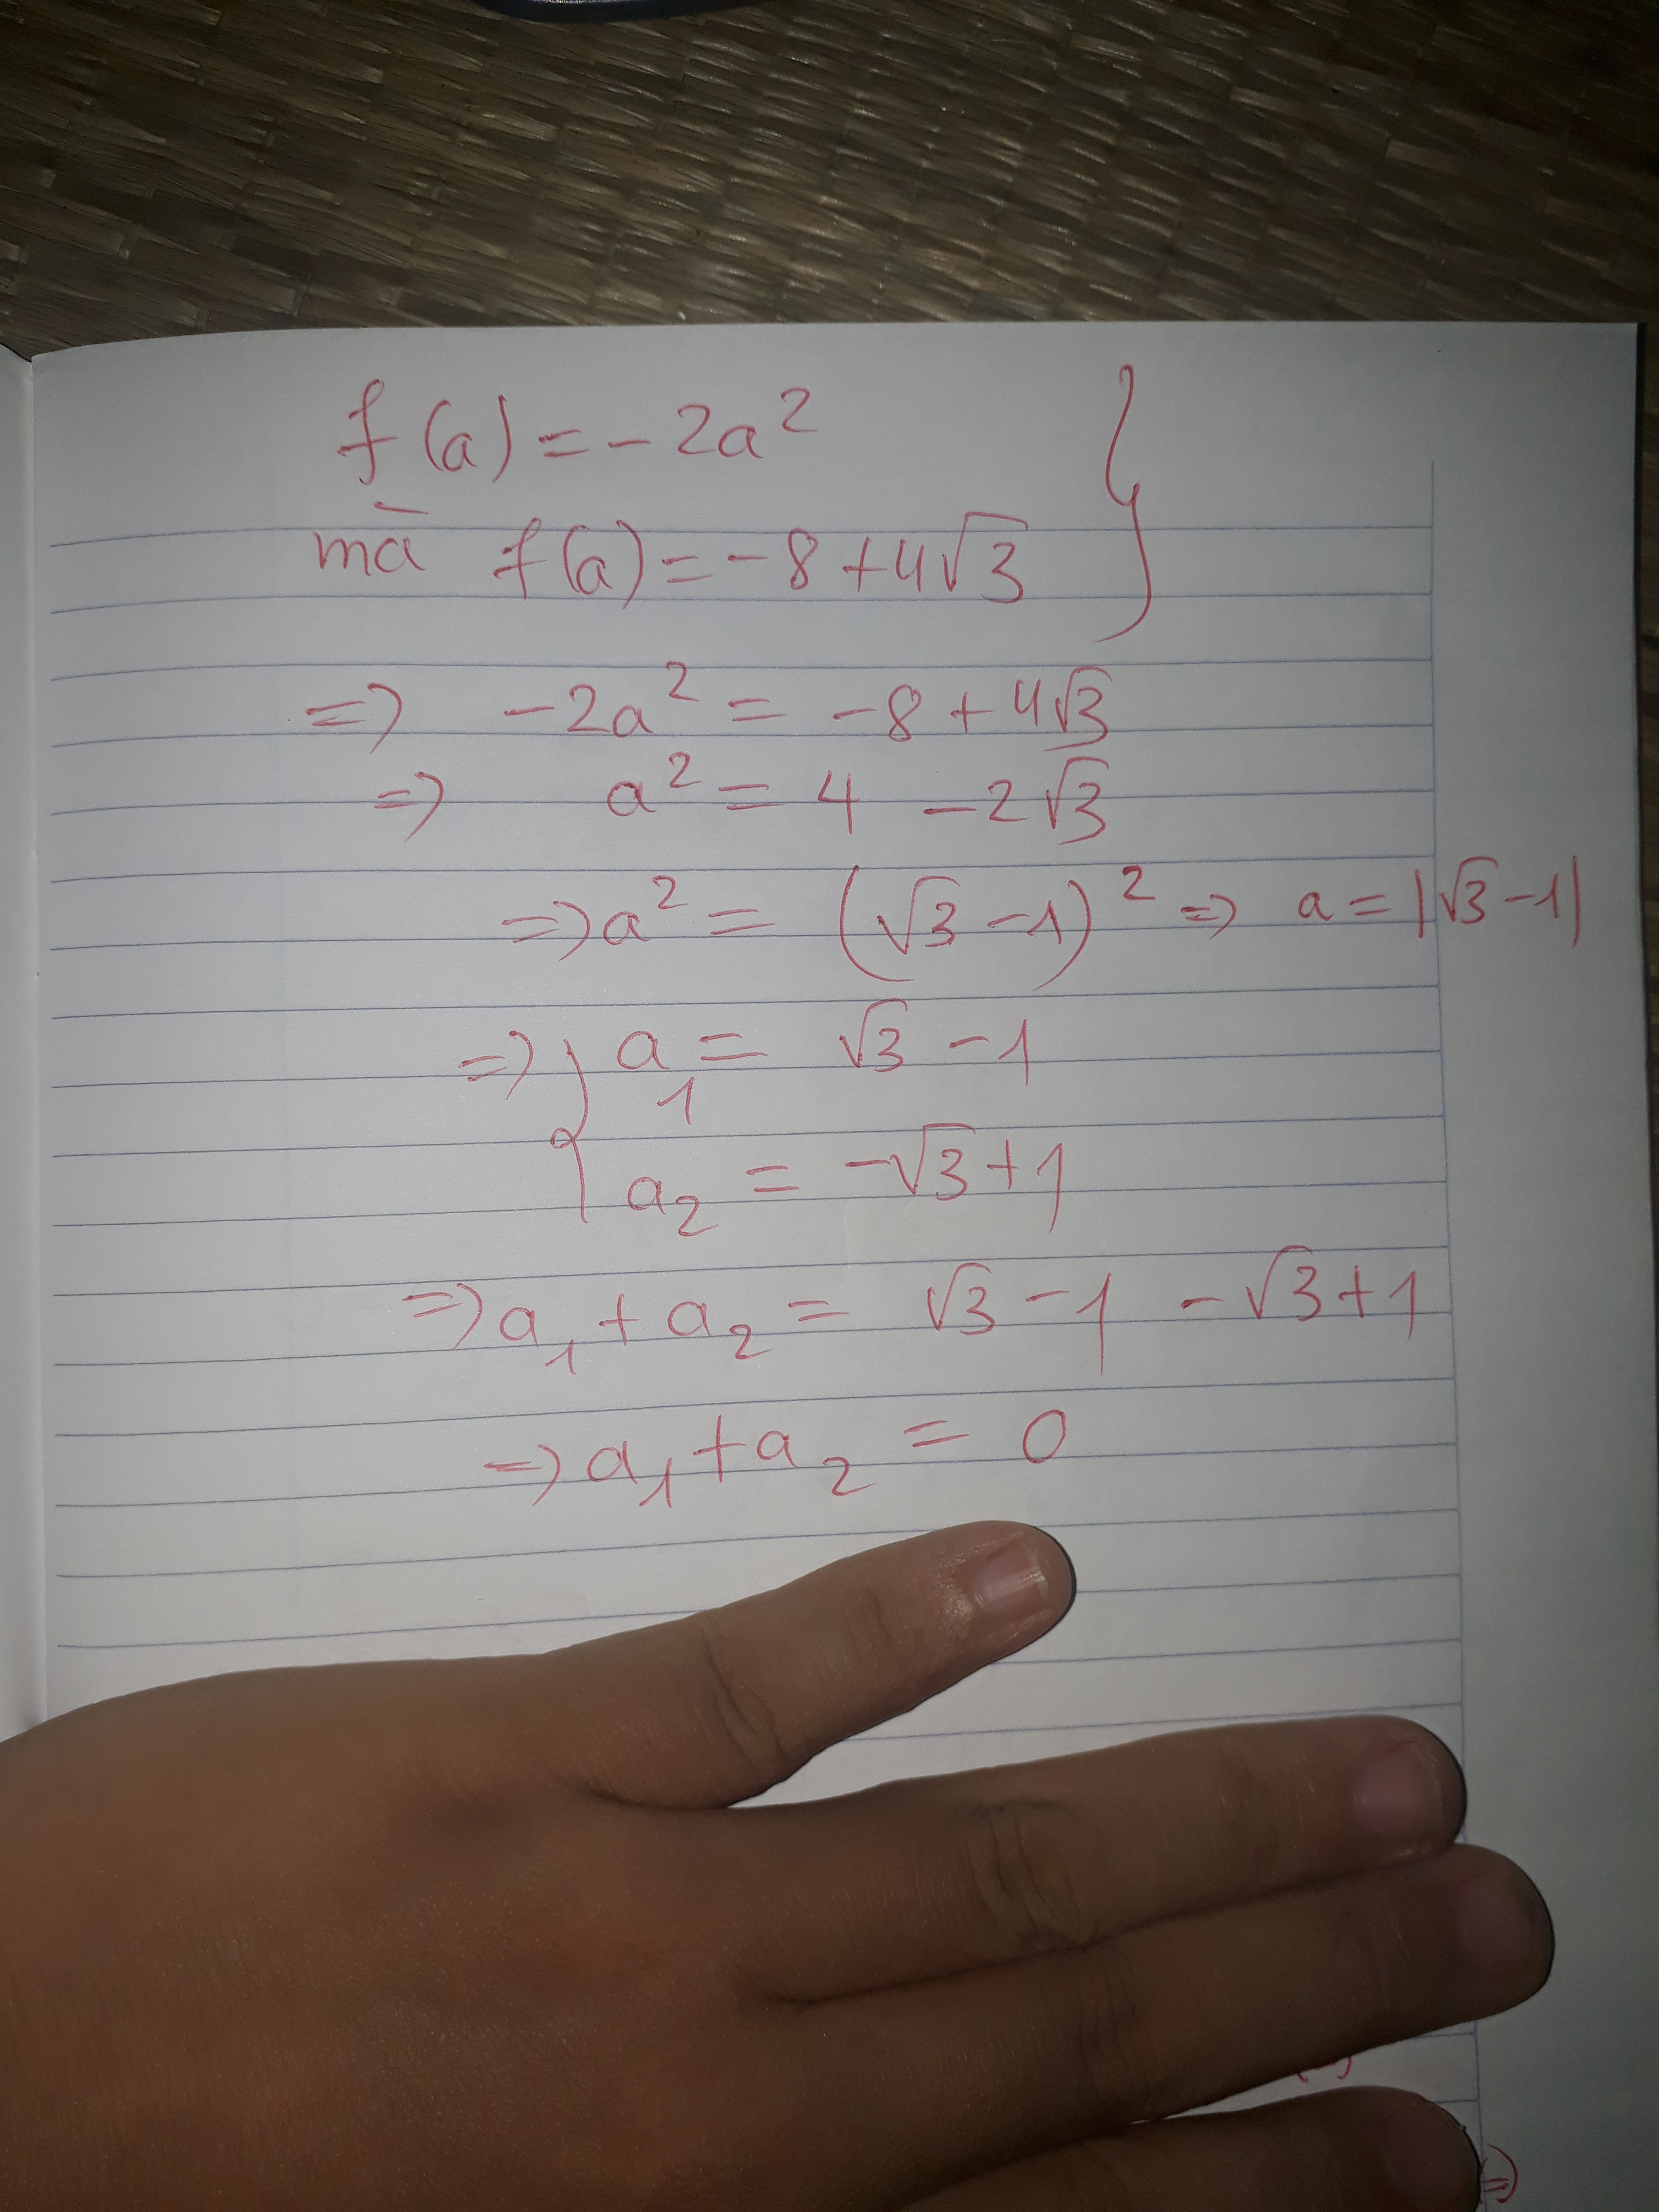 f(a) = -2a²
mà f(a) = -8 + 4√3 }
=> -2a² = -8 + 4√3
=> a² = 4 - 2√3
=> a² = (√3 - 1)² => a = |√3 - 1|
=> { a₁ = √3 - 1
a₂ = -√3 + 1
=> a₁ + a₂ = √3 - 1 - √3 + 1
=> a₁ + a₂ = 0